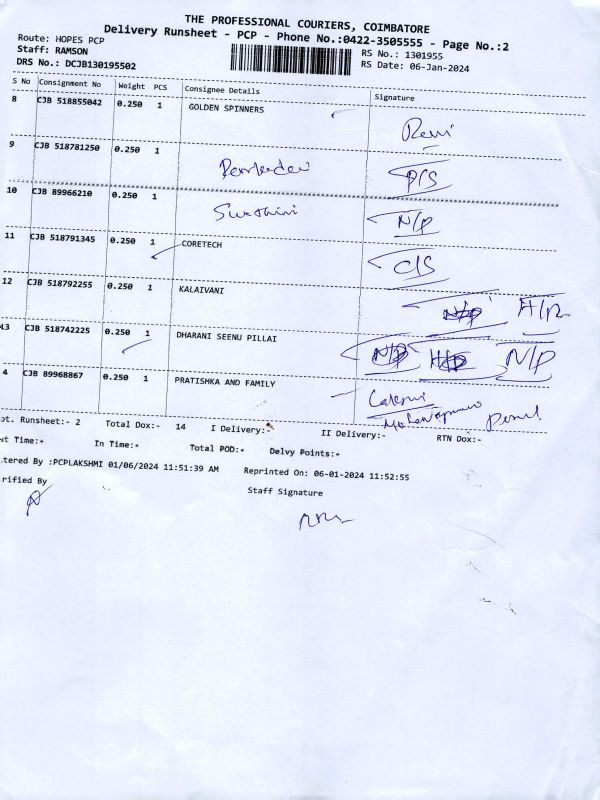 THE PROFESSIONAL COURIERS, COIMBATORE
Delivery Runsheet - PCP - Phone No.:0422-3505555 - Page No.:2
Route: HOPES PCP
RS No.: 1301955
Staff: RAMSON
RS Date: 06-Jan-2024
DRS No.: DCJB130195502
S No Consignment No Weight PCS Consignee Details Signature
8 CJB 518855042 0.250 1 GOLDEN SPINNERS
9 CJB 518781250 0.250 1 P/S
10 CJB 89966210 0.250 1 N/P
11 CJB 518791345 0.250 1 CORETECH C/S
12 CJB 518792255 0.250 1 KALAIVANI
13 CJB 518742225 0.250 1 DHARANI SEENU PILLAI N/P
4 CJB 89968867 0.250 1 PRATISHKA AND FAMILY
ot. Runsheet:- 2 Total Dox:- 14 I Delivery:- II Delivery:- RTN Dox:-
ut Time:* In Time:* Total POD:* Delvy Points:*
tered By :PCPLAKSHMI 01/06/2024 11:51:39 AM Reprinted On: 06-01-2024 11:52:55
rified By Staff Signature